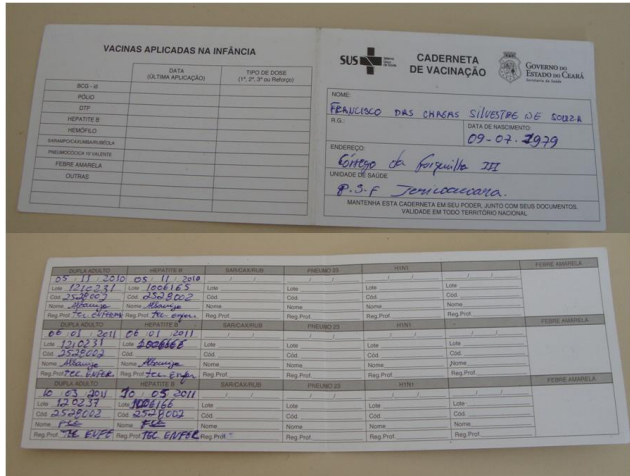 VACINAS APLICADAS NA INFÂNCIA
DATA
(ÚLTIMA APLICAÇÃO)
TIPO DE DOSE
(1ª, 2ª, 3ª ou Reforço)
BCG - id
PÓLIO
DTP
HEPATITE B
HEMÓFILO
SARAMPO/CAXUMBA/RUBÉOLA
PNEUMOCÓCICA 10 VALENTE
FEBRE AMARELA
OUTRAS
SUS
CADERNETA
DE VACINAÇÃO
GOVERNO DO
ESTADO DO CEARÁ
Secretaria da Saúde
NOME:
FRANCISCO DAS CHAGAS SILVESTRE DE SOUZA
R.G.:
DATA DE NASCIMENTO:
09-07-1979
ENDEREÇO:
Córrego da Forquilha III
UNIDADE DE SAÚDE
P.S.F Jericoacoara.
MANTENHA ESTA CADERNETA EM SEU PODER, JUNTO COM SEUS DOCUMENTOS.
VALIDADE EM TODO TERRITÓRIO NACIONAL
DUPLA ADULTO HEPATITE B SAR/CAX/RUB PNEUMO 23 H1N1 FEBRE AMARELA
05 11 2010 05 11 2010
Lote 1210231 Lote 1006165 Lote Lote Lote Lote
Cód. 2528002 Cód. 2528002 Cód. Cód. Cód. Cód.
Nome Nome Nome Nome Nome Nome
Reg.Prof. Tec. Reg.Prof. Tec. Reg.Prof. Reg.Prof. Reg.Prof. Reg.Prof.
DUPLA ADULTO HEPATITE B SAR/CAX/RUB PNEUMO 23 H1N1 FEBRE AMARELA
06 01 2011 06 01 2011
Lote 1210231 Lote Lote Lote Lote Lote
Cód. 2528002 Cód. Cód. Cód. Cód. Cód.
Nome Nome Nome Nome Nome Nome
Reg.Prof. TEC. ENFER Reg.Prof. Tec. Reg.Prof. Reg.Prof. Reg.Prof. Reg.Prof.
DUPLA ADULTO HEPATITE B SAR/CAX/RUB PNEUMO 23 H1N1 FEBRE AMARELA
10 03 2011 10 05 2011
Lote Lote Lote Lote Lote Lote
Cód. 2528002 Cód. 2528002 Cód. Cód. Cód. Cód.
Nome Nome Nome Nome Nome Nome
Reg.Prof. TEC ENFE Reg.Prof. TEC. ENFER Reg.Prof. Reg.Prof. Reg.Prof. Reg.Prof.